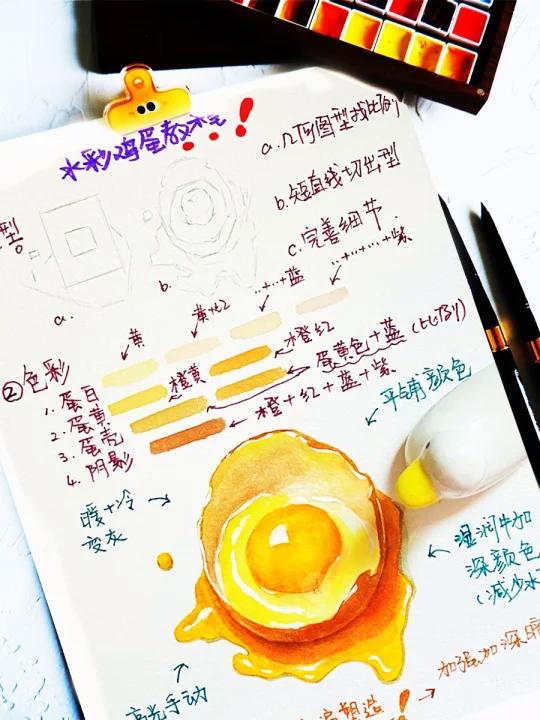 水彩鸡蛋教程...!
a.几何图型找比例
b.短直线切出型
c.完善细节.
型。
a.
b.
黄
黄+红
..+..+蓝
..+..+..+紫
②色彩
1.蛋白
2.蛋黄
3.蛋壳
4.阴影
橙黄
橙红
蛋黄色+蓝(比例)
橙+红+蓝+紫
平铺颜色
暖+冷
变灰
湿润中加
深颜色
(减少水
加强加深暗
高光手动
塑造!